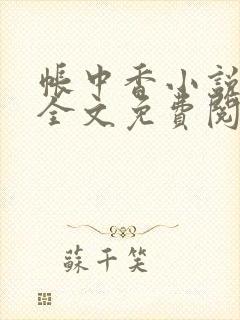 帳中香小說
全文免費閱
蘇千笑